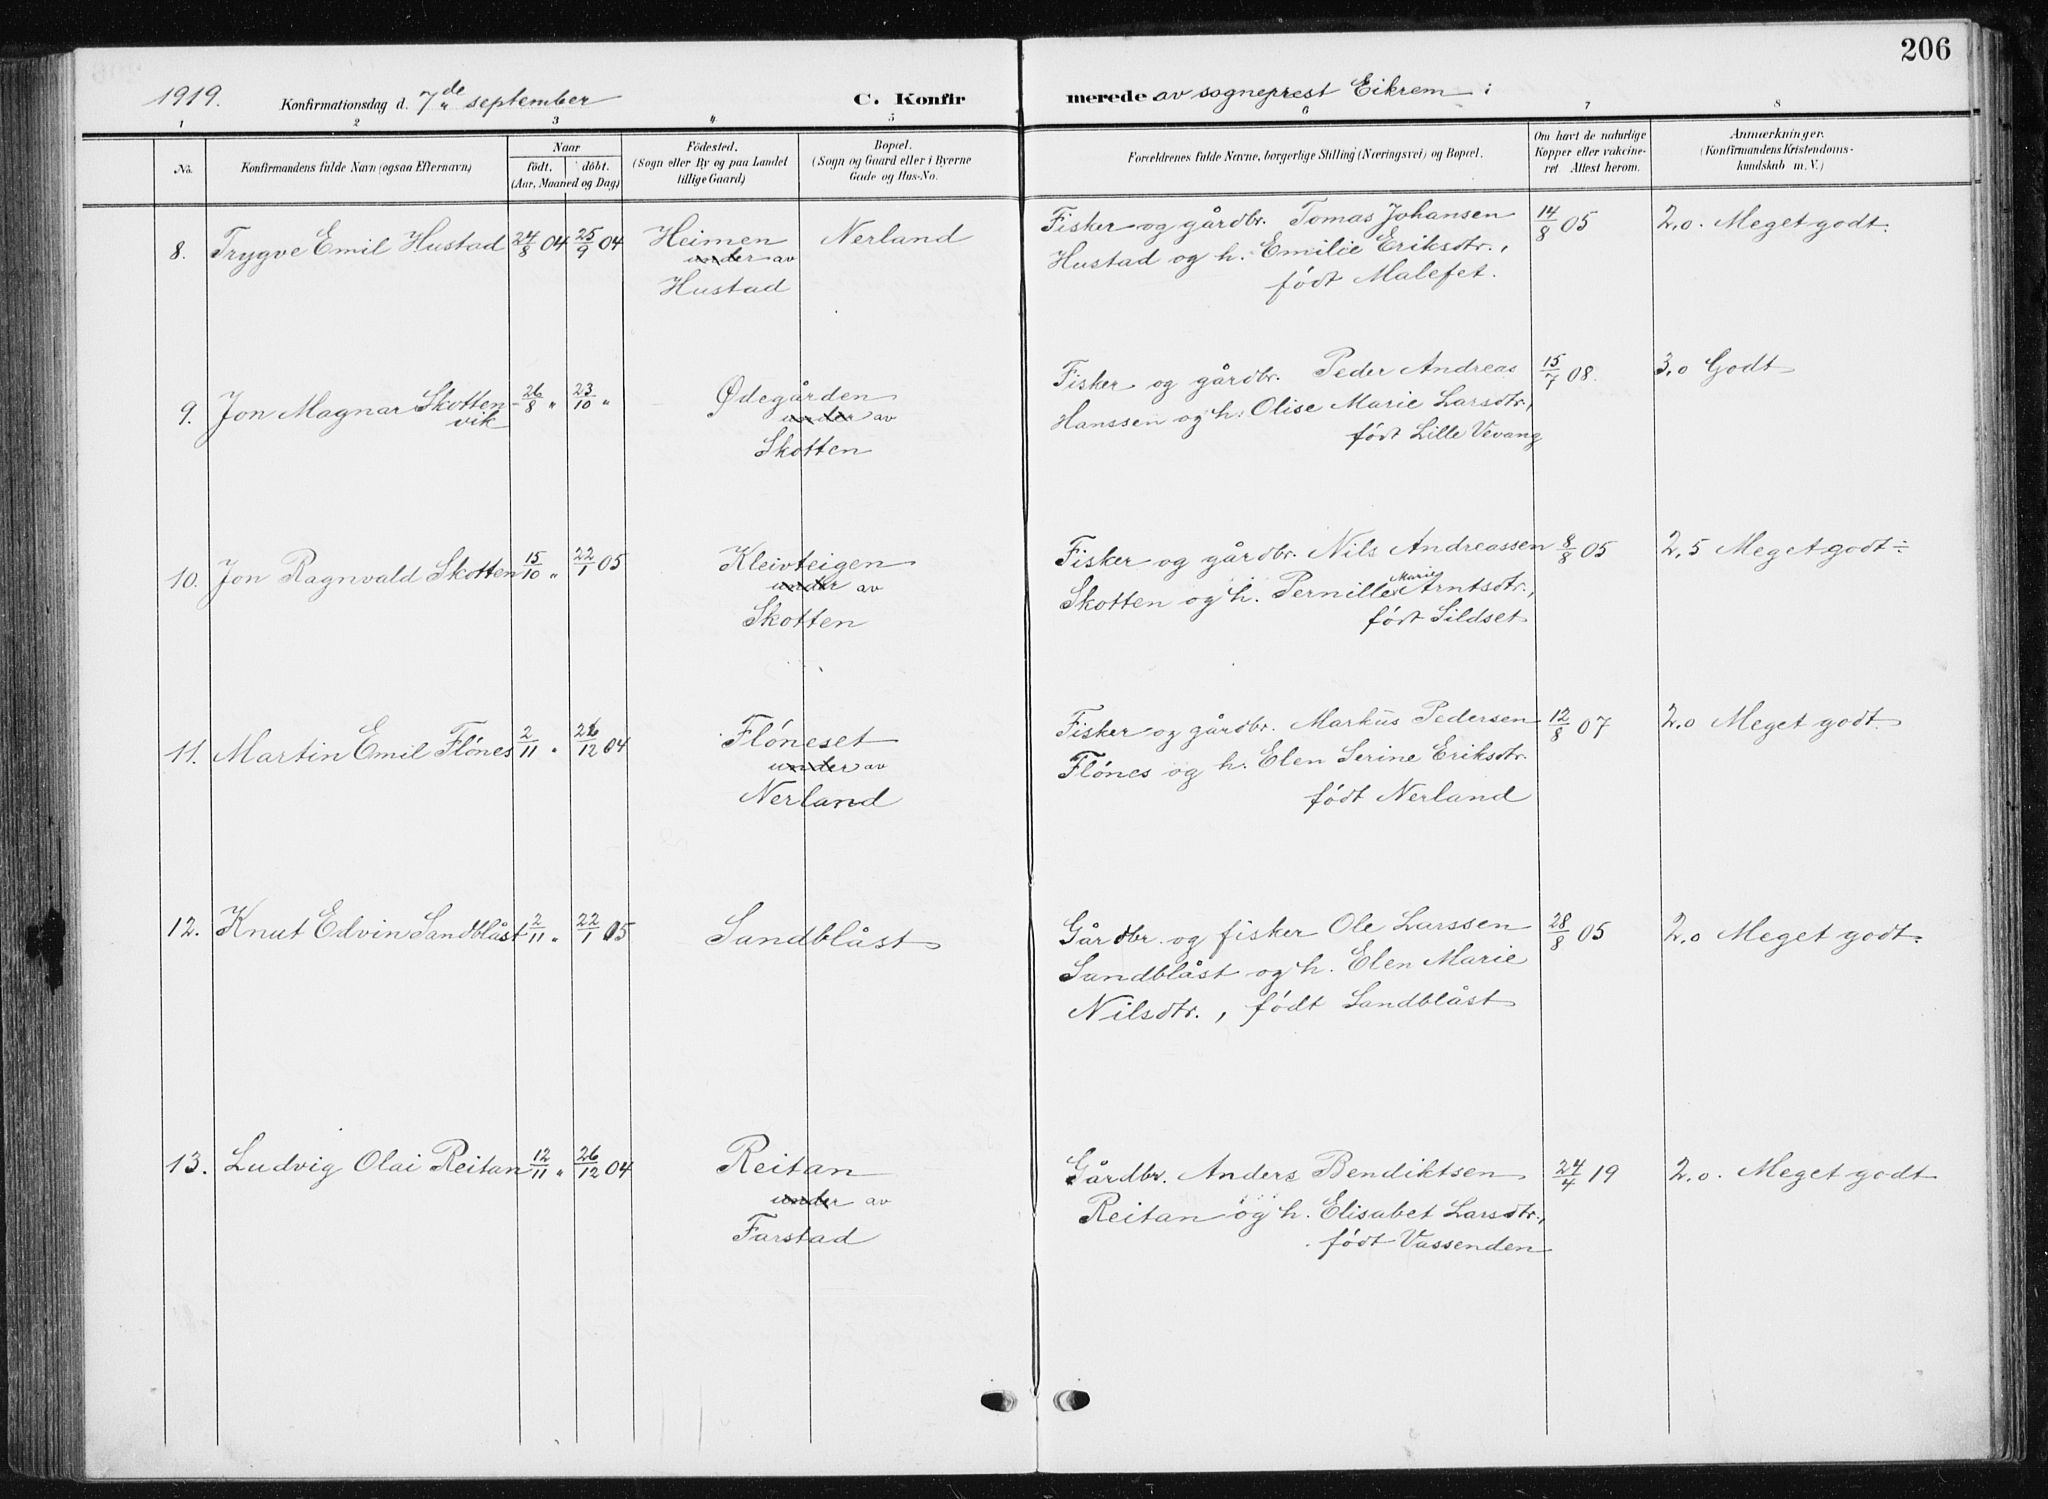 206
1919. Konfirmationsdag d. 7de september C. Konfir merede av sogneprest Eikrem
1 2 3 4 5 6 7 8
No. Konfirmandens fulde Navn (ogsaa Efternavn)
Naar
födt. döbt.
(Aar, Maaned og Dag)
Födested.
(Sogn eller By og paa Landet
tillige Gaard)
Bopæl.
(Sogn og Gaard eller i Byerne
Gade og Hus-No.
Forældrenes fulde Navne, borgerlige Stilling (Næringsvei) og Bopæl.
Om havt de naturlige
Kopper eller vakcine-
ret Attest herom.
Anmærkninger.
(Konfirmandens Kristendoms-
kundskab m. V.)
8. Trygve Emil Hustad 24/8 04 25/9 04
Heimen
under av
Hustad
Nerland
Fisker og gårdbr. Tomas Johansen
Hustad og h. Emilie Eriksdtr.,
født Malefet.
14/8 05
2,0. Meget godt.
9. Jon Magnar Skotten
vik
26/8 " 23/10 "
Ødegården
under av
Skotten
Fisker og gårdbr. Peder Andreas
Hanssen og h. Olise Marie Larsdtr.,
født Lille Vevang
15/7 08.
3,0 Godt
10. Jon Ragnvald Skotten 15/10 " 22/1 05
Kleivteigen
under av
Skotten
Fisker og gårdbr. Nils Andreassen
Skotten og h. Pernille Marie Arntsdtr.,
født Sildset
8/8 05
2,5 Meget godt ÷
11. Martin Emil Flónes 2/11 " 26/12 04
Flóneset
under av
Nerland
Fisker og gårdbr. Markus Pedersen
Flónes og h. Elen Serine Eriksdtr.
født Nerland
12/8 07
2,0 Meget godt
12. Knut Edvin Sandblåst 2/11 " 22/1 05
Sandblåst
Gårdbr. og fisker Ole Larssen
Sandblåst og h. Elen Marie
Nilsdtr., født Sandblåst
28/8 05
2,0 Meget godt.
13. Ludvig Olai Reitan 12/11 " 26/12 04
Reitan
under av
Farstad
Gårdbr. Anders Bendiktsen
Reitan og h. Elisabet Larsdtr.,
født Vassenden
24/4 19
2,0. Meget godt